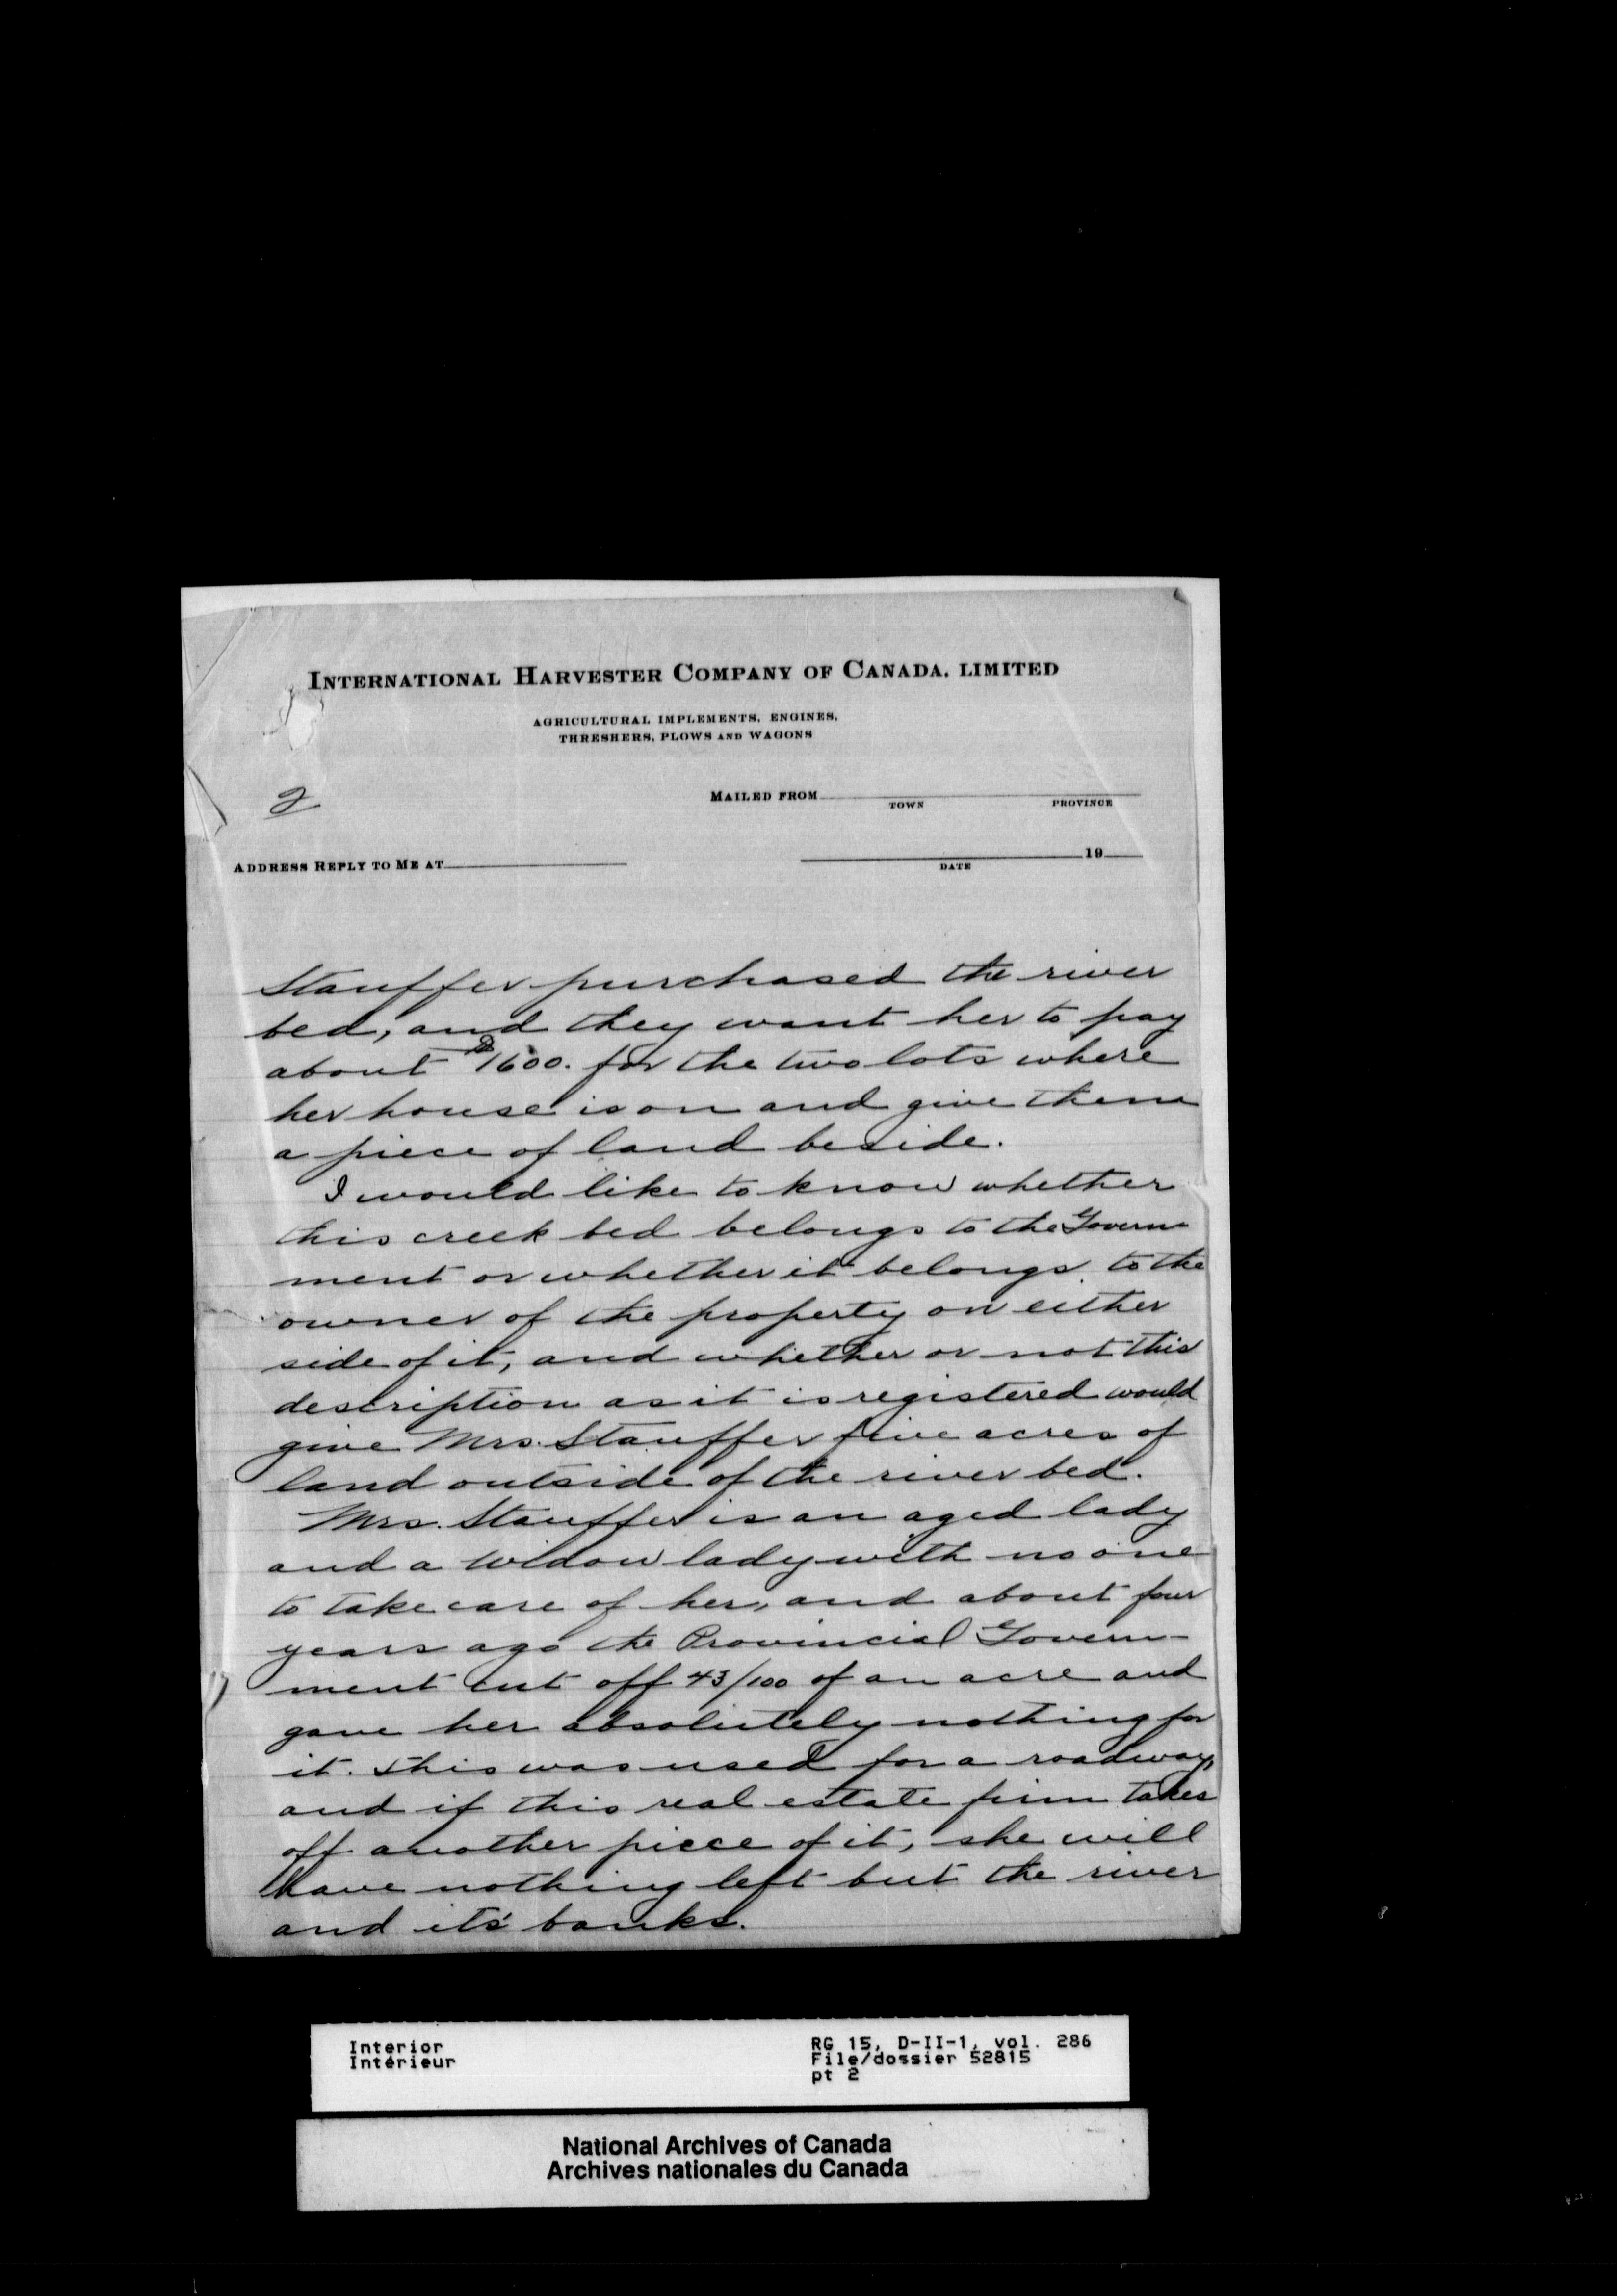 INTERNATIONAL HARVESTER COMPANY OF CANADA, LIMITED
AGRICULTURAL IMPLEMENTS, ENGINES,
THRESHERS, PLOWS AND WAGONS
2
MAILED FROM
TOWN PROVINCE
ADDRESS REPLY TO ME AT
19
DATE
Stauffer purchased the river
bed, and they want her to pay
about $1600. for the two lots where
her house is on and give them
a piece of land beside.
I would like to know whether
this creek bed belongs to the Govern-
ment or whether it belongs to the
owner of the property on either
side of it, and whether or not this
description as it is registered would
give Mrs. Stauffer five acres of
land outside of the river bed.
Mrs. Stauffer is an aged lady
and a widow lady with no one
to take care of her, and about four
years ago the Provincial Govern-
ment cut off 43/100 of an acre and
gave her absolutely nothing for
it. This was used for a roadway,
and if this real estate firm takes
off another piece of it, she will
have nothing left but the river
and it's banks.
Interior
Intérieur
RG 15, D-II-1, vol. 286
File/dossier 52815
pt 2
National Archives of Canada
Archives nationales du Canada